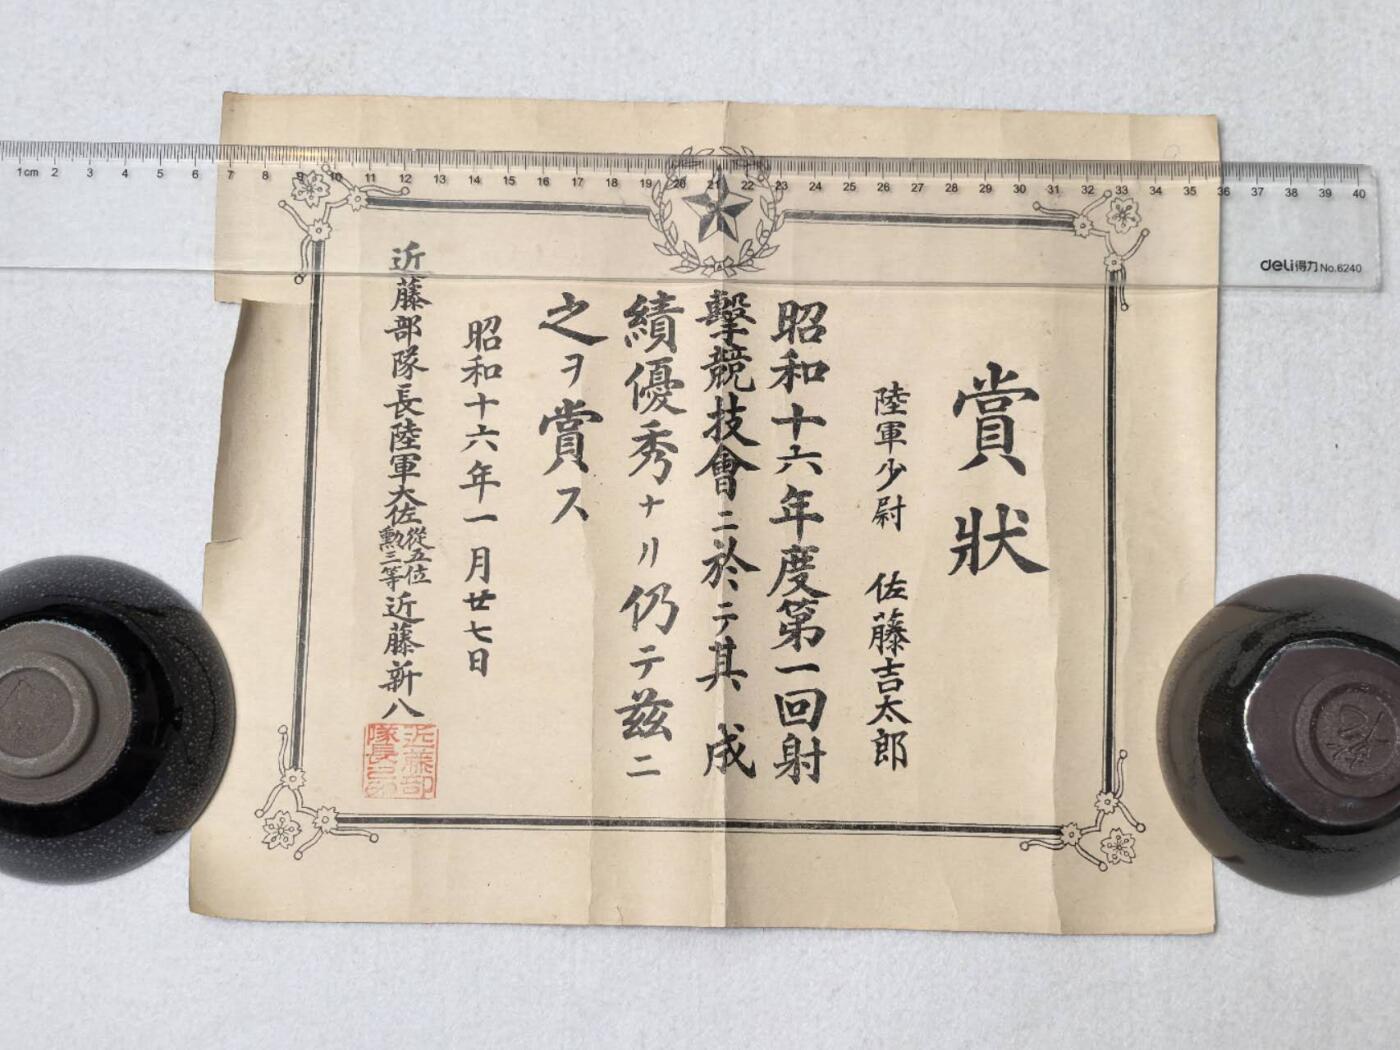 賞狀
陸軍少尉 佐藤吉太郎
昭和十六年度第一回射
擊競技會ニ於テ其ノ成
績優秀ナリ仍テ茲ニ
之ヲ賞ス
昭和十六年一月廿七日
近藤部隊長陸軍大佐從五位勳三等近藤新八
近藤部
隊長之印
1cm 2 3 4 5 6 7 8 9 10 11 12 13 14 15 16 17 18 19 20 21 22 23 24 25 26 27 28 29 30 31 32 33 34 35 36 37 38 39 40
deli得力 No.6240